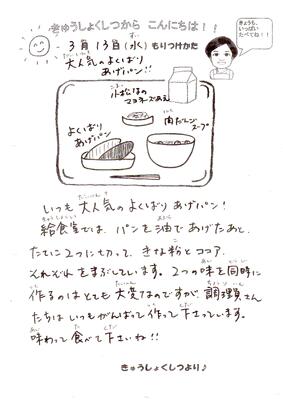 きゅうしょくしつから こんにちは！！
きょうも、
いっぱい
たべてね！！
3月13日(水) もりつけかた
大人気のよくばり
あげパン!!
小松なの
マヨネーズあえ
肉だんご
スープ
よくばり
あげパン
いつも大人気のよくばりあげパン!
給食室では、パンを油であげたあと、
たてに2つに切って、きな粉とココア、
それぞれをまぶしています。2つの味を同時に
作るのはとても大変なのですが、調理員さん
たちはいつもがんばって作って下さっています。
味わって食べて下さいね!!
きゅうしょくしつより♪